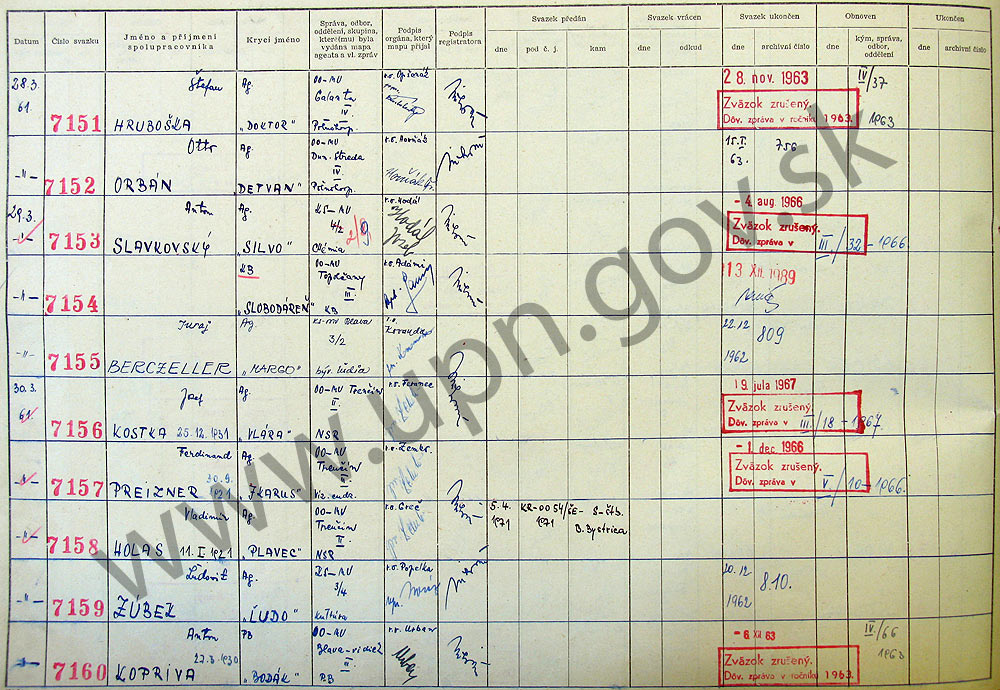 Datum
Číslo svazku
Jméno a příjmení
spolupracovníka
Krycí jméno
Správa, odbor,
oddělení, skupina,
které(mu) byla
vydána mapa
agenta a vl. zpráv
Podpis
orgána, který
mapu přijal
Podpis
registratora
Svazek předán
dne
pod č. j.
kam
Svazek vrácen
dne
odkud
Svazek ukončen
dne
archivní číslo
Obnoven
dne
kým, správa,
odbor,
oddělení
Ukončen
dne
archivní číslo
28.3.
61.
7151
Štefan
HRUBOŠKA
Ag.
„DOKTOR"
OO-MV
Galanta
IV.
28. nov. 1963
Zväzok zrušený.
Dôv. zpráva v ročníku 1963.
IV/37
1963
-„-
7152
Otto
ORBÁN
Ag.
„DETVAN"
OO-MV
Dun. Streda
IV
15.I.
63.
756
29.3.
-„-
7153
Anton
SLAVKOVSKÝ
Ag.
„SILVO"
KS-MV
4/2
2/9
Chémia
r.o. Hodál
- 4. aug. 1966
Zväzok zrušený.
Dôv. zpráva v
III/32-1966.
-„-
7154
KB
„SLOBODÁREŇ"
OO-MV
Topoľčany
III.
KB
r.o. Adámi
13 XII. 1989
-„-
7155
Juraj
BERCZELLER
Ag.
„MARGO"
KS-MV Blava
3/2
býv. ľudia
r.o.
22.12
1962
809
30.3.
61
7156
Jozef
KOSTKA 25.12.1931
Ag.
„VLÁRA"
OO-MV Trenčín
II.
NSR
r.o. Ference
19. júla 1967
Zväzok zrušený.
Dôv. zpráva v
III/18-1967.
-„-
7157
Ferdinand
30.9.
PREIZNER
Ag.
„IKARUS"
OO-MV
Trenčín
II
- 1. dec. 1966
Zväzok zrušený.
Dôv. zpráva v
V/10-1966.
-„-
7158
Vladimír
HOLAS 11.I.1921
Ag.
„PLAVEC"
OO-MV
Trenčín
II.
NSR
r.o. Grce
5.4.
1971
KR-0054/ŠE-
1971
S-ŠtB.
B. Bystrica
-„-
7159
Ľudovít
ZÚBEK
Ag.
„ĽUDO"
KS-MV
3/4
Kultúra
r.o. Popelka
20.12
1962
810.
-„-
7160
Anton
27.3.1930
KOPRIVA
PB
„BODÁK"
OO-MV
Blava-vidiek
II
PB
r.o. Urban
- 6. XII 63
Zväzok zrušený.
Dôv. zpráva v ročníku 1963.
IV./66
1963
www.upn.gov.sk